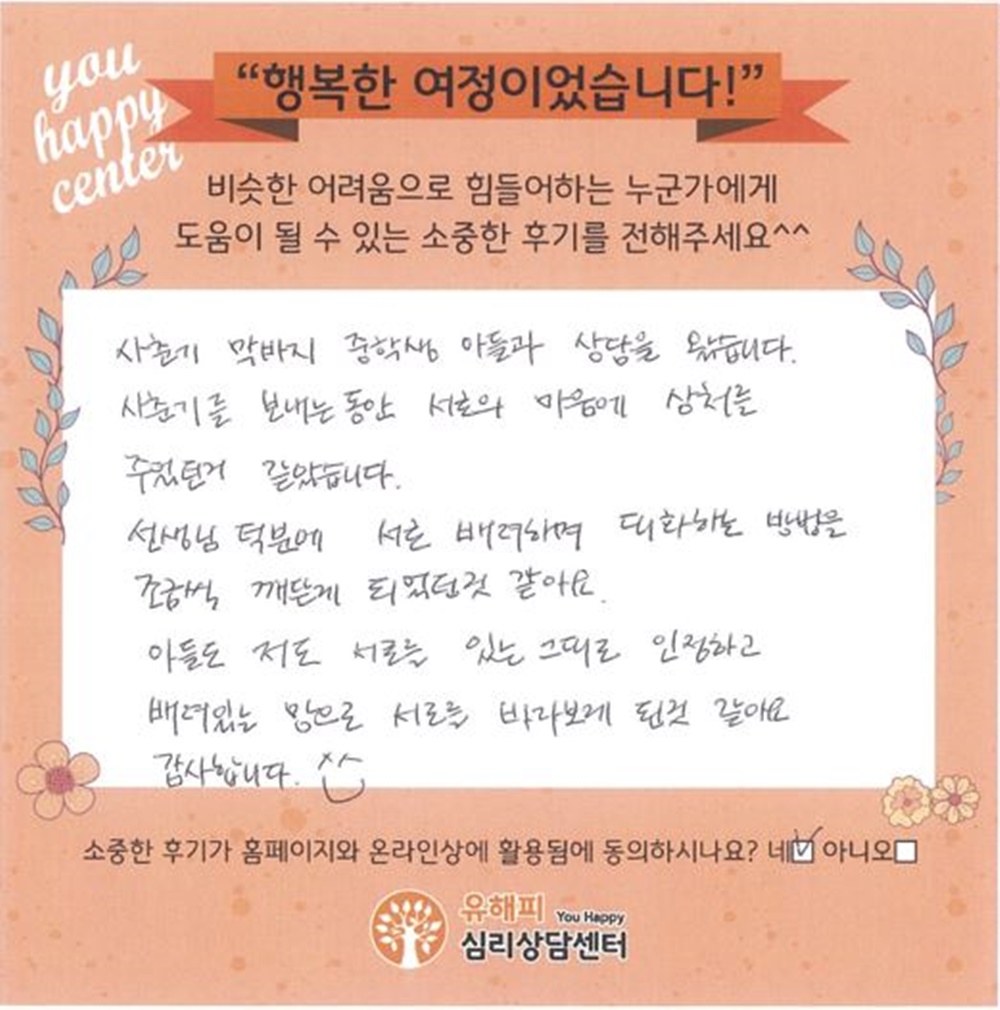 you
happy
center
“행복한 여정이었습니다!”
비슷한 어려움으로 힘들어하는 누군가에게
도움이 될 수 있는 소중한 후기를 전해주세요^^
사춘기 막바지 중학생 아들과 상담을 왔습니다.
사춘기를 보내는 동안 서로의 마음에 상처를
주었던거 같았습니다.
선생님 덕분에 서로 배려하며 대화하는 방법을
조금씩 깨닫게 되었던것 같아요.
아들도 저도 서로를 있는 그대로 인정하고
배려있는 맘으로 서로를 바라보게 된것 같아요
감사합니다. ^^
소중한 후기가 홈페이지와 온라인상에 활용됨에 동의하시나요? 네☑ 아니오☐
유해피 You Happy
심리상담센터